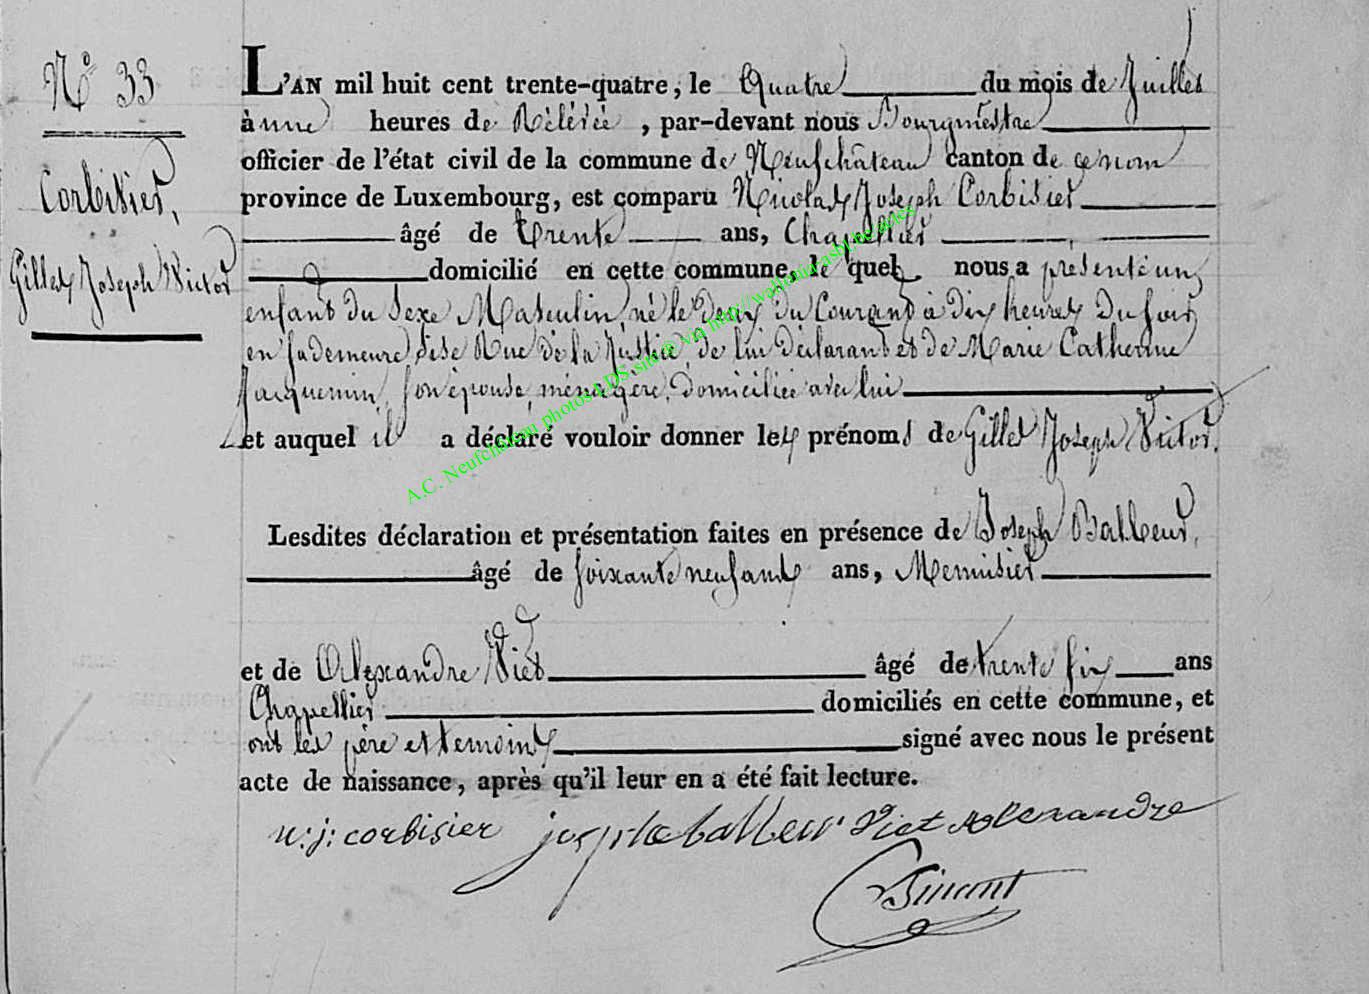 N° 33
Corbisier,
Gilles Joseph Victor
L'AN mil huit cent trente-quatre, le Quatre du mois de Juillet
à une heures de Rélévée, par-devant nous Bourgmestre
officier de l'état civil de la commune de Neufchâteau canton de ce nom
province de Luxembourg, est comparu Nicolas Joseph Corbisier
âgé de trente ans, Chapellier
domicilié en cette commune, le quel nous a présenté un
enfant du Sexe Masculin, né le deux du Courant à dix heures du soir
en sa demeure sise Rue de la Justice de lui déclarant et de Marie Catherine
Jacquemin, son épouse, ménagère, domiciliée avec lui
et auquel il a déclaré vouloir donner les prénoms de Gilles Joseph Victor.
Lesdites déclaration et présentation faites en présence de Joseph Balleur,
âgé de soixante neuf ans ans, Menuisier
et de Alexandre Viet âgé de trente six ans
Chapellier domiciliés en cette commune, et
ont les père et temoins signé avec nous le présent
acte de naissance, après qu'il leur en a été fait lecture.
n: j: corbisier joseph balleur Viet Alexandre
A.C. Neufchâteau photos LDS sité@ via http://wallonia.asbl.be/actes